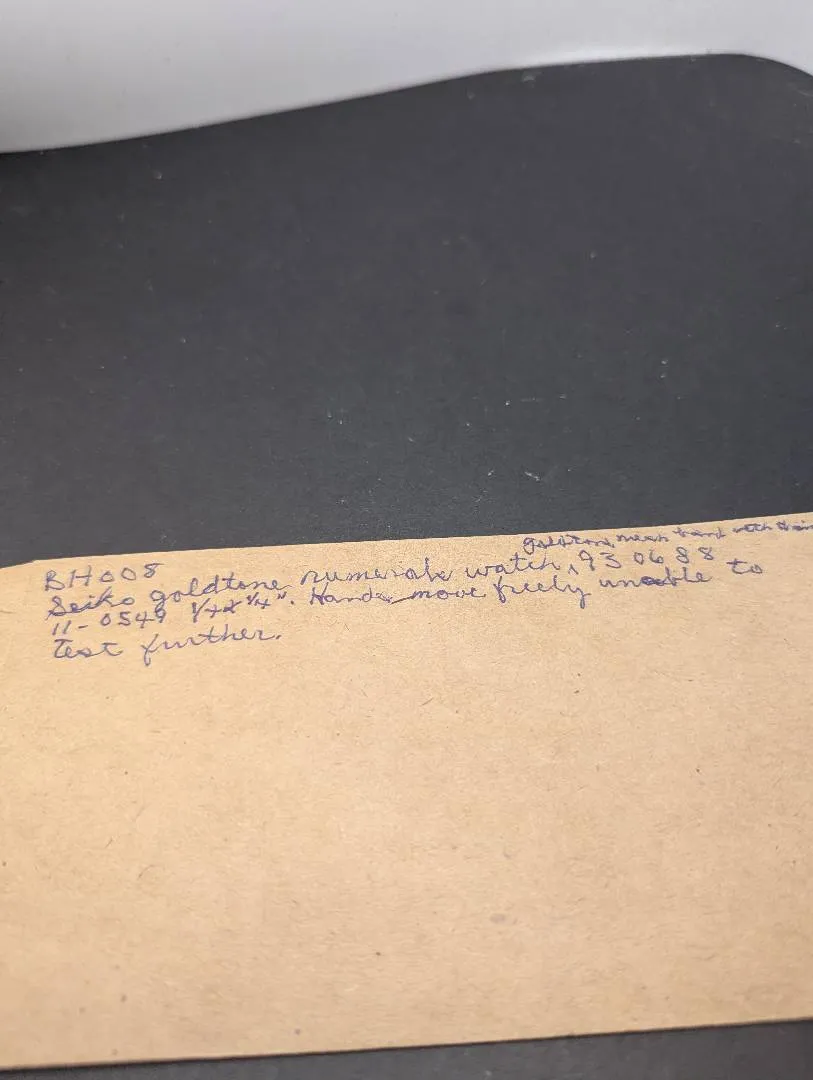 BH008
goldtone mesh band with chain
Seiko goldtone numerals watch, 930688
11-0549 1/4 x 1/4". Hands move freely unable to
Test further.